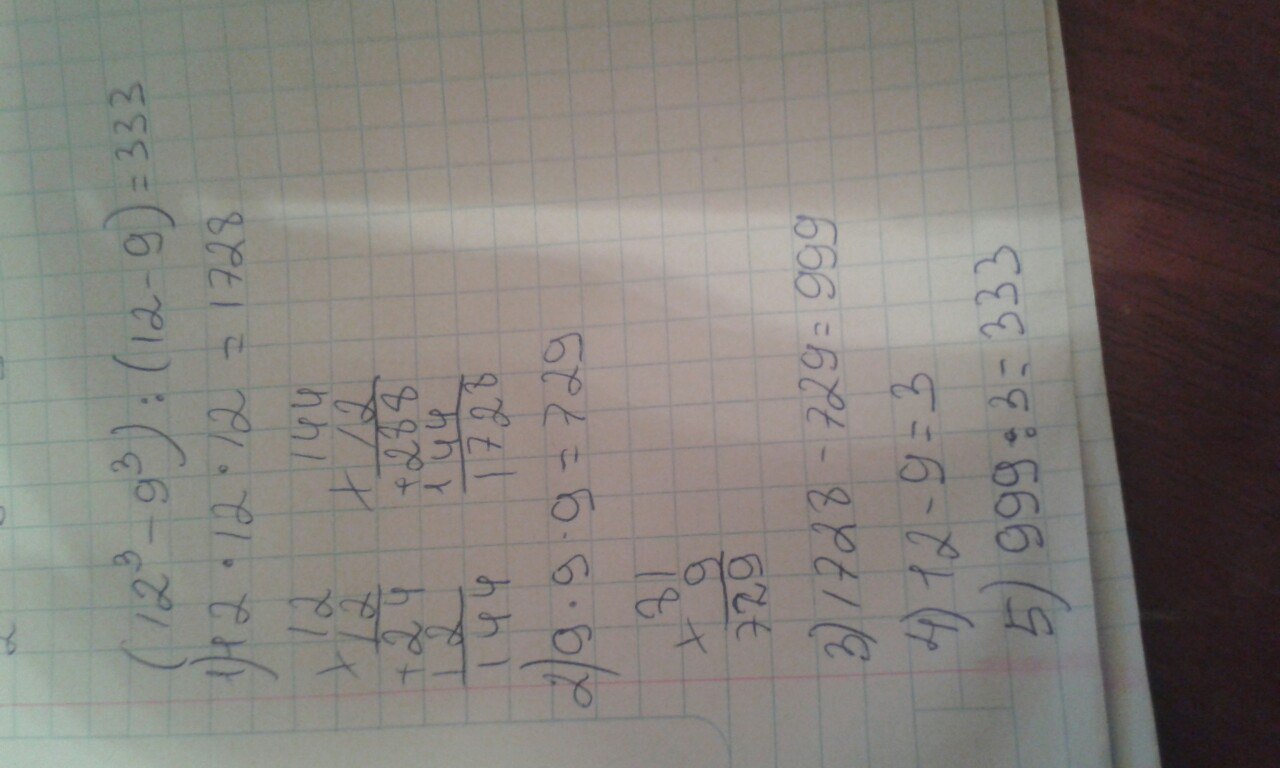 (12³ - 9³) : (12 - 9) = 333
1) 12 · 12 · 12 = 1728
× 12 × 144
12 12
+ 24 + 288
12 144
144 1728
2) 9 · 9 · 9 = 729
× 81
9
729
3) 1728 - 729 = 999
4) 12 - 9 = 3
5) 999 : 3 = 333